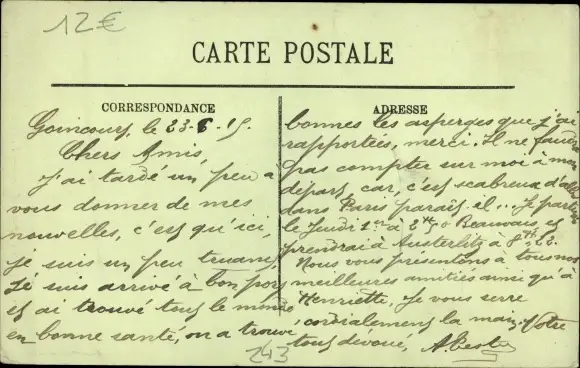 12€
CARTE POSTALE
CORRESPONDANCE
Goincourt, le 23-6-15
Chers Amis,
J'ai tardé un peu à
vous donner de mes
nouvelles, c'est qu'ici,
je suis un peu truand,
Je suis arrivé à bon port
et ai trouvé tout le monde
en bonne santé, on a trouvé
ADRESSE
bonnes les asperges que j'ai
rapportées, merci. Il ne faudra
pas compter sur moi à mon
départ, car, c'est scabreux d'aller
dans Paris paraît-il... Je partirai
le Jeudi 1er à 2H50 Beauvais et
prendrai à Austerlitz à 8H22.
Nous vous présentons à tous nos
meilleures amitiés ainsi qu'à
Henriette, Je vous serre
cordialement la main. Votre
tout dévoué,
243